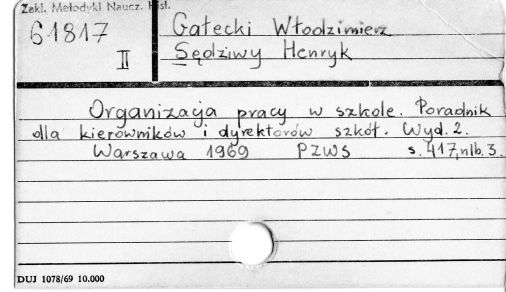 Zakł. Metodyki Naucz. Hist.
61817
II
Gałecki Włodzimierz
Sędziwy Henryk
Organizacja pracy w szkole. Poradnik
dla kierowników i dyrektorów szkół. Wyd. 2.
Warszawa 1969 PZWS s. 417, nlb. 3.
DUJ 1078/69 10.000